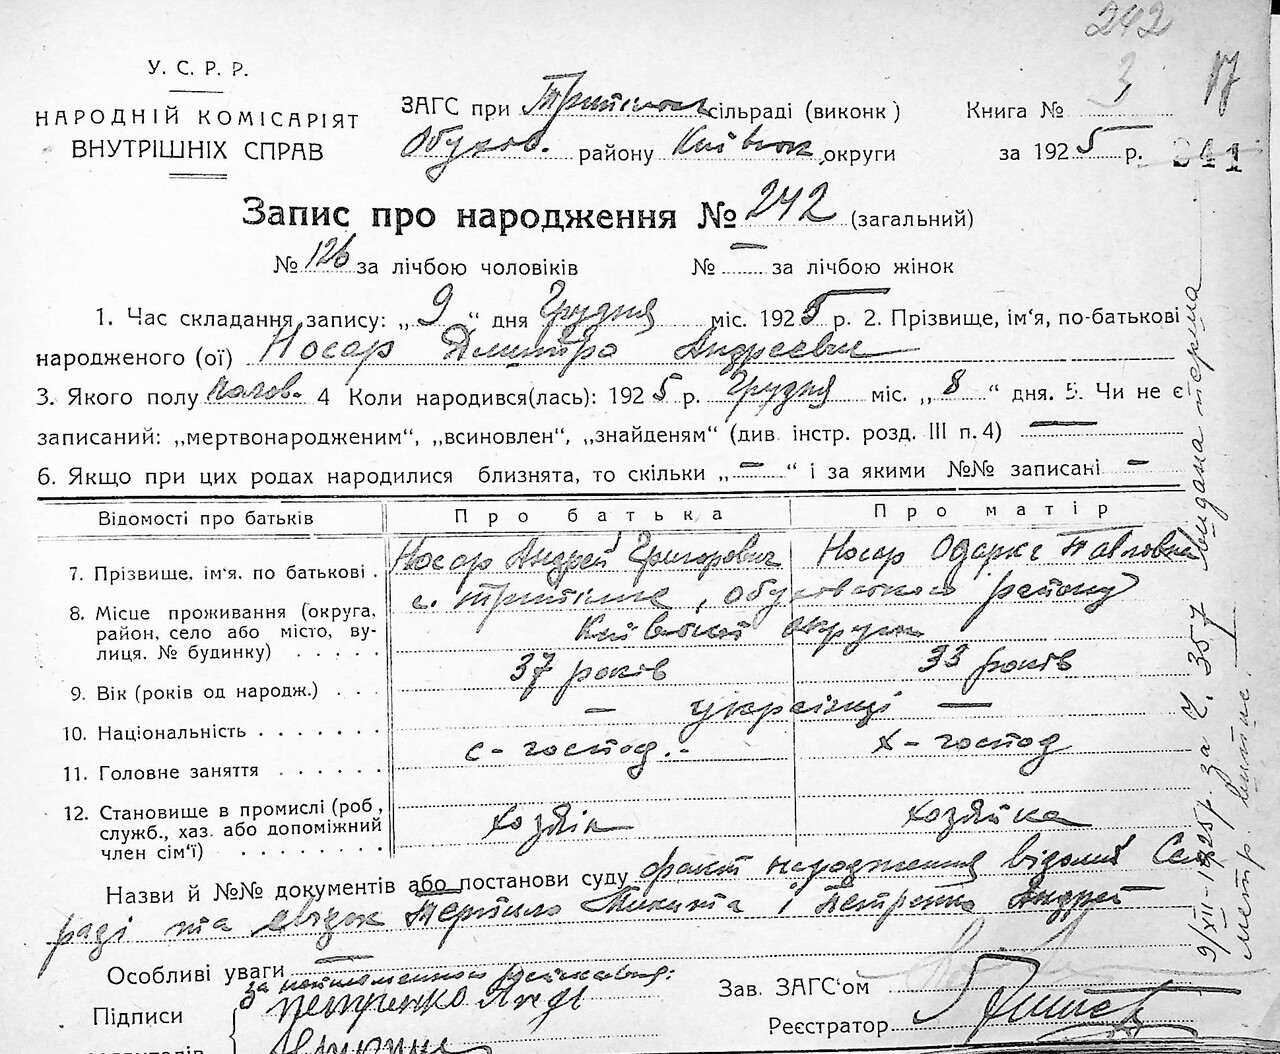 242
У. С. Р. Р.
НАРОДНІЙ КОМІСАРІЯТ
ВНУТРІШНІХ СПРАВ
ЗАГС при сільраді (виконк)
Обухов. району Київськ округи
Книга № 3
17
за 1925 р.
241
Запис про народження № 242 (загальний)
№ 126 за лічбою чоловіків № — за лічбою жінок
1. Час складання запису: „ 9 “ дня Грудня міс. 1925 р. 2. Прізвище, ім'я, по-батькові
народженого (ої) Носар Дмитро Андреевич
3. Якого полу чолов. 4 Коли народився(лась): 1925 р. Грудня міс. „ 8 “ дня. 5. Чи не є
записаний: „мертвонародженим“, „всиновлен“, „знайденям“ (див. інстр. розд. III п. 4) —
6. Якщо при цих родах народилися близнята, то скільки „ — “ і за якими №№ записані —
Відомості про батьків Про батька Про матір
7. Прізвище, ім'я, по батькові . Носар Андрей Григорович Носар Одарка Павловна
8. Місце проживання (округа, район, село або місто, вулиця, № будинку) . . . . . с. , Обуховського району
Київської округи
9. Вік (років од народж.) . . . 37 років 33 років
10. Національність . . . . . . . — українці —
11. Головне заняття . . . . . . с-господ. х-господ
12. Становище в промислі (роб, служб., хаз. або допоміжний член сім'ї) . . . . . . . . хозяїн хозяйка
Назви й №№ документів або постанови суду факт народження відомий Сель
раді та свідок Микита і Петренко Андрей
Особливі уваги —
за
Підписи Петренко Андр
Зав. ЗАГС'ом
Реєстратор
9/XII-1925р. за Ч. 357 видана